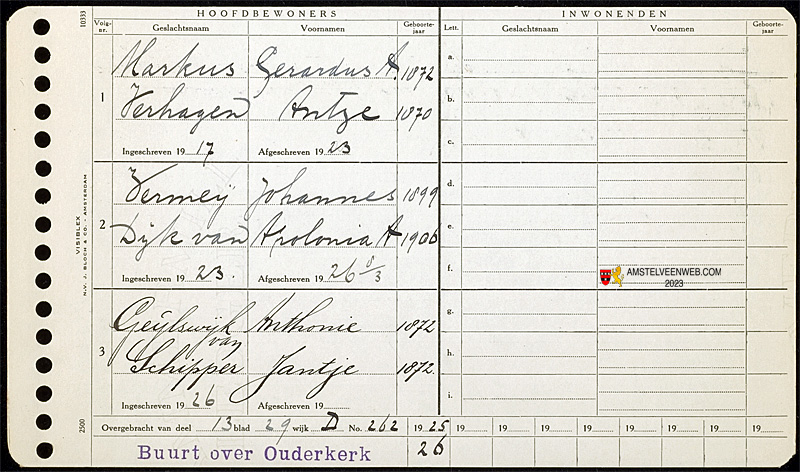 HOOFDBEWONERS
INWONENDEN
Volg-nr.
Geslachtsnaam
Voornamen
Geboorte-jaar
Lett.
Geslachtsnaam
Voornamen
Geboorte-jaar
1
Markus Gerardus A. 1872
Verhagen Antje 1870
Ingeschreven 19 17 Afgeschreven 19 23
2
Vermeij Johannes 1899
Dijk van Apolonia A 1906
Ingeschreven 19 23. Afgeschreven 19 26 8/3
3
Geijlswijk van Anthonie 1872
Schipper Jantje 1872
Ingeschreven 19 26 Afgeschreven 19
a.
b.
c.
d.
e.
f.
g.
h.
i.
Overgebracht van deel 13 blad 29 wijk D No. 262 19 25 19 19 19 19 19 19 19 19
26
Buurt over Ouderkerk
10333
VISIBLEX
N.V. J. BLOCH & CO. - AMSTERDAM
2500
AMSTELVEENWEB.COM
2023